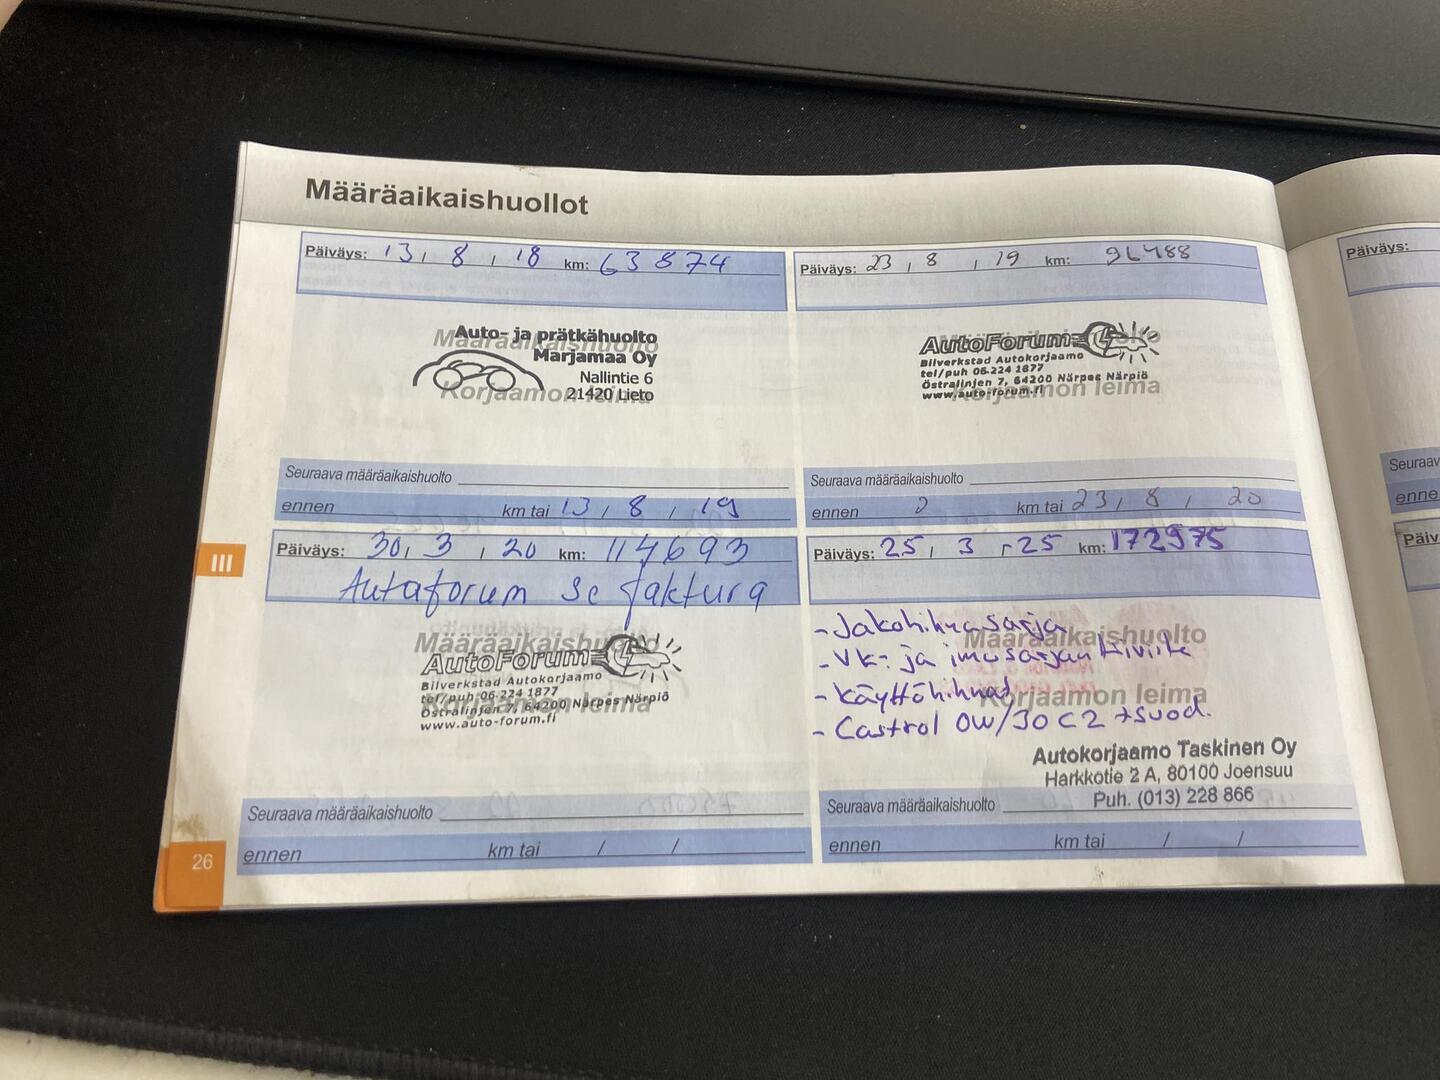 Määräaikaishuollot
Päiväys: 13, 8, 18 km: 63874
Määräaikaishuolto
Korjaamon leima
Auto- ja prätkähuolto
Marjamaa Oy
Nallintie 6
21420 Lieto
Seuraava määräaikaishuolto
ennen km tai 13, 8, 19
Päiväys: 23, 8, 19 km:
AutoForum
Bilverkstad Autokorjaamo
tel/puh 06-224 1877
Östralinjen 7, 64200 Närpes Närpiö
www.auto-forum.fi
Korjaamon leima
Seuraava määräaikaishuolto
ennen km tai 23, 8, 20
Päiväys: 30, 3, 20 km: 114693
Autaforum se faktura
Määräaikaishuolto
AutoForum
Bilverkstad Autokorjaamo
tel/puh 06-224 1877
Korjaamon leima
Östralinjen 7, 64200 Närpes Närpiö
www.auto-forum.fi
Seuraava määräaikaishuolto
ennen km tai / /
Päiväys: 25, 3, 25 km: 172975
- Jakohihnasarja
Määräaikaishuolto
- VK- ja imusarjan tiiviste
- Käyttöhihnat
Korjaamon leima
- Castrol 0W/30 C2 +suod.
Autokorjaamo Taskinen Oy
Harkkotie 2 A, 80100 Joensuu
Puh. (013) 228 866
Seuraava määräaikaishuolto
ennen km tai / /
III
26
Päiväys:
Seuraav
enne
Päiv